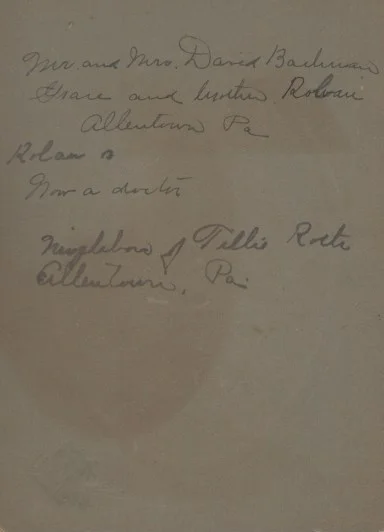 Mr. and Mrs. David Bachman
Grace and brother Rolvan
Allentown Pa
Rolan is
Now a doctor
Nieghbors of Tillie Roth
Allentown, Pa.